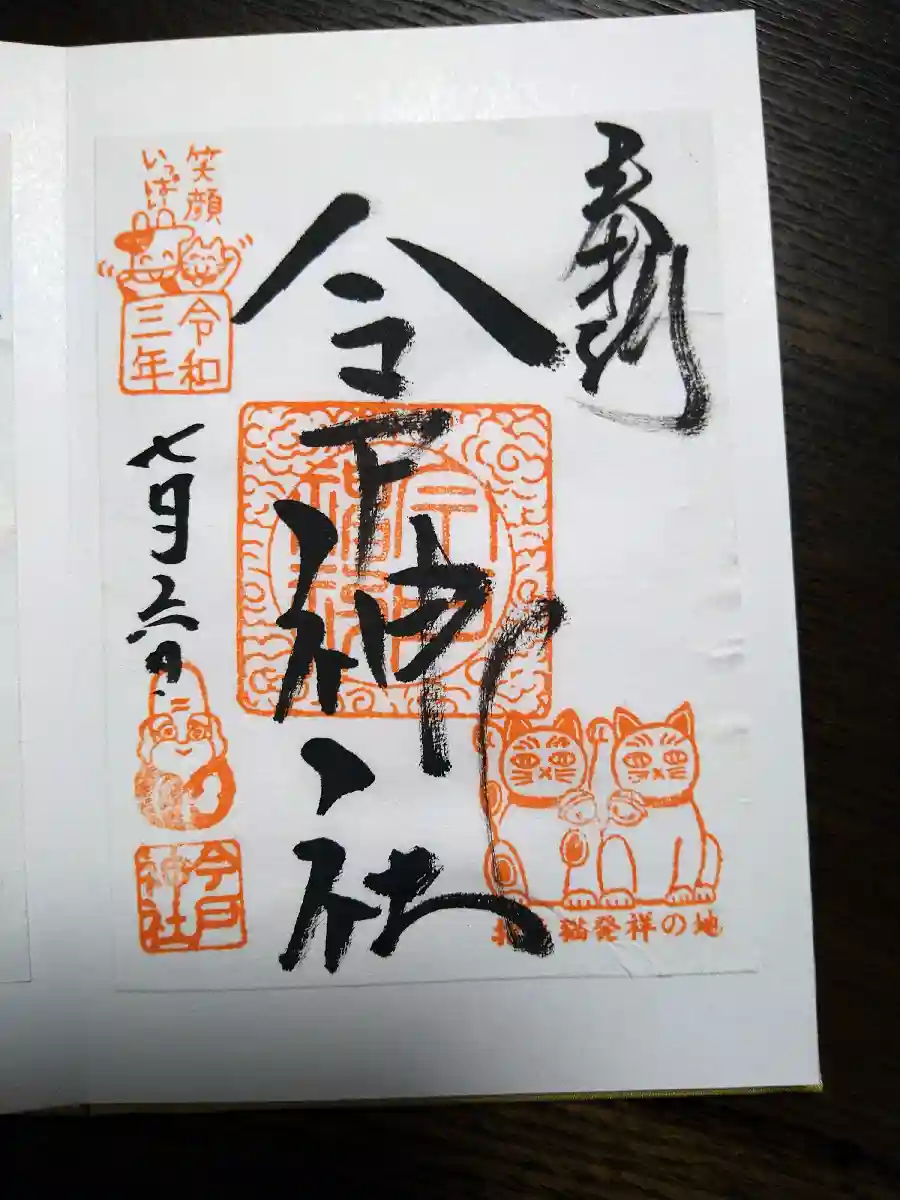 奉拝
今戸神社
笑顔
いっぱい
令和
三年
七月二六日
今戸
神社
招き猫発祥の地